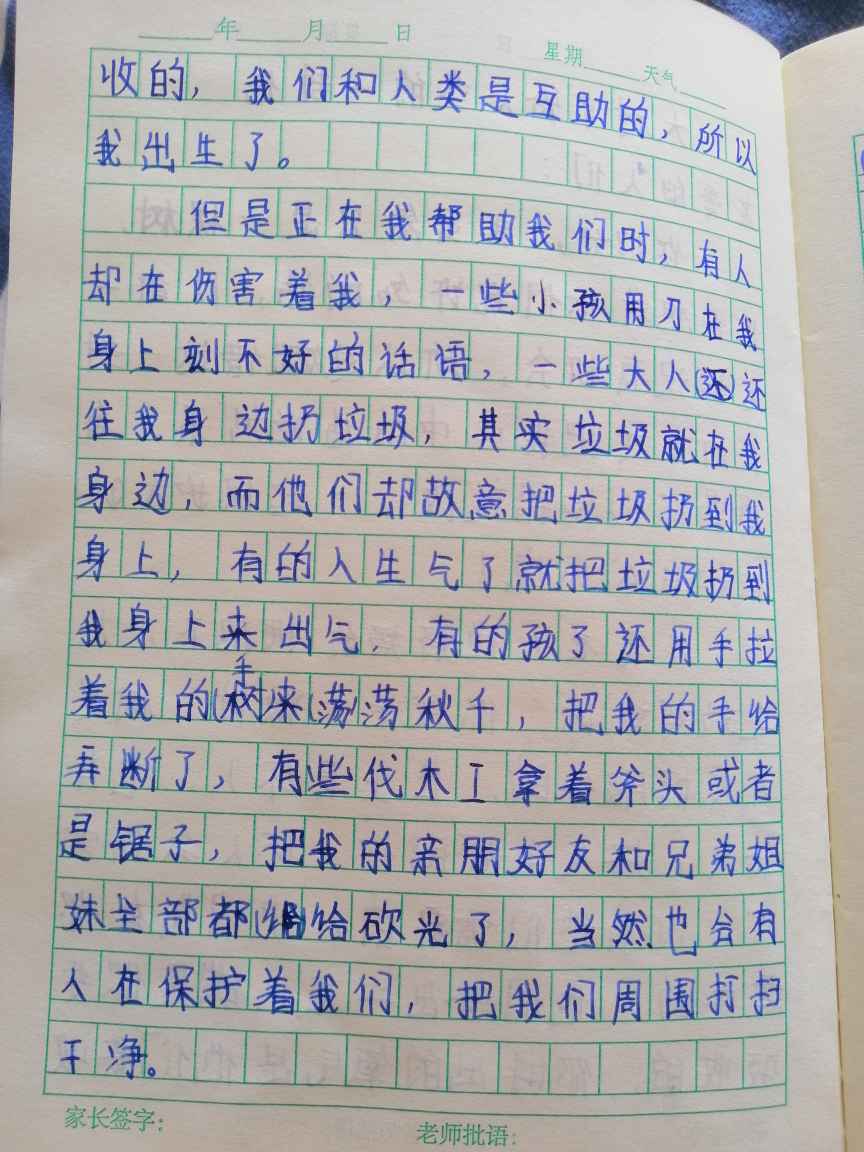 年 月 日 星期 天气
收的，我们和人类是互助的，所以
我出生了。
但是正在我帮助我们时，有人
却在伤害着我，一些小孩用刀在我
身上刻不好的话语，一些大人(还)还
往我身边扔垃圾，其实垃圾就在我
身边，而他们却故意把垃圾扔到我
身上，有的人生气了就把垃圾扔到
我身上来出气，有的孩了还用手拉
着我的(树)手来(荡)荡秋千，把我的手给
弄断了，有些伐木工拿着斧头或者
是锯子，把我的亲朋好友和兄弟姐
妹全部都给砍光了，当然也会有
人在保护着我们，把我们周围打扫
干净。
家长签字： 老师批语：